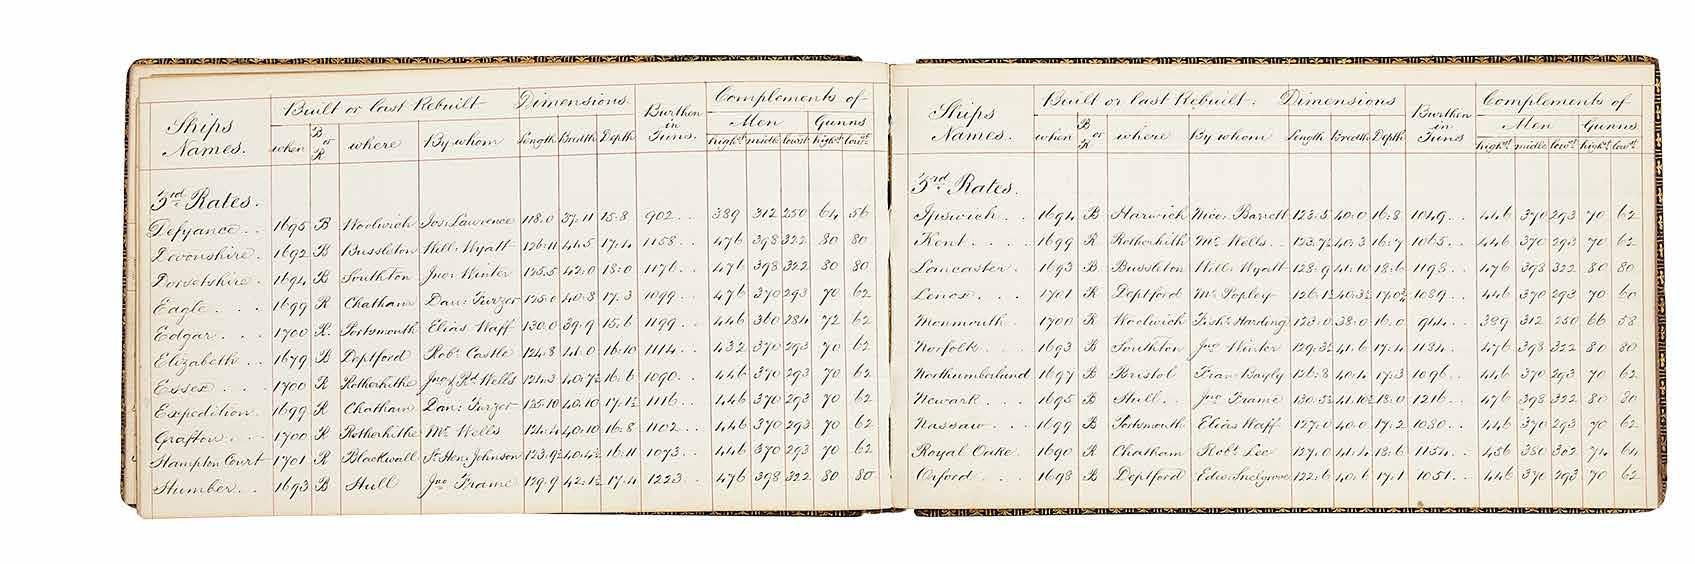 Ships Names. Built or last Rebuilt Dimensions Burthen in Tuns. Complements of
Men Gunns
when B or R where By whom Length Bredth Depth high.st midle lowst high.st low.st
3rd Rates.
Defyance . . 1695 B Woolwich Jos: Lawrence 118:0 37:11 15:8 902 . . 389 312 250 64 56
Devonshire . 1692 B Bussleton Will: Wyatt 126:11 41:5 17:4 1158 . . 476 398 322 80 80
Dorsetshire . 1694 B Southton Jno: Winter 125:5 42:0 18:0 1176 . . 476 398 322 80 80
Eagle . . . 1699 R Chatham Dan: Furzer 125:0 40:8 17:3 1099 . . 476 370 293 70 62
Edgar . . . 1700 R Portsmouth Elias Waff 130:0 39:9 15:6 1199 . . 446 360 284 72 62
Elizabeth . . 1679 B Deptford Robt. Castle 124:8 41:0 16:10 1114 . . 432 370 293 70 62
Essex . . . 1700 R Rotherhithe Jno & Rd Wells 124:3 40:7½ 16:6 1090 . . 446 370 293 70 62
Expedition . 1699 R Chatham Dan: Furzer 125:10 40:10 17:1½ 1116 . . 446 370 293 70 62
Grafton . . . 1700 R Rotherhithe Mr. Wells 124:4 40:10 16:8 1102 . . 446 370 293 70 62
Hampton Court 1701 R Blackwall Sr. Hen: Johnson 123:9½ 40:4½ 16:11 1073 . . 446 370 293 70 62
Humber . . 1693 B Hull Jno Frame 129:9 42:1½ 17:4 1223 . . 476 398 322 80 80
Ships Names. Built or last Rebuilt. Dimensions Burthen in Tuns Complements of
Men Gunns
when B or R where By whom Length Bredth Depth high.st midle low.st high.st low.st
3rd Rates.
Ipswich . . . 1694 B Harwich Nico: Barrett 123:5 40:0 16:8 1049 . . 446 370 293 70 62
Kent . . . . 1699 R Rotherhith Mr. Wells . . 123:7½ 40:3 16:7 1065 . . 446 370 293 70 62
Lancaster . 1693 B Bussleton Will: Wyatt 128:9 41:10 18:6 1198 . . 476 398 322 80 80
Lenox . . . 1701 R Deptford Mr. Popley 126:1½ 40:3½ 17:0¾ 1089 . . 446 370 293 70 60
Monmouth . 1700 R Woolwich Fishr. Harding 123:0 38:0 16:0 944 . . 389 312 250 66 58
Norfolk . . . 1693 B Southton Jno Winter 129:3½ 41:6 17:4 1184 . . 476 398 322 80 80
Northumberland 1697 B Bristol Fran: Bayly 126:8 40:4 17:3 1096 . . 446 370 293 70 62
Newark . . . 1695 B Hull . . Jno Frame 130:5½ 41:10½ 18:0 1216 . . 476 398 322 80 80
Nassaw . . . 1699 B Portsmouth Elias Waff 127:0 40:0 17:2 1080 . . 446 370 293 70 62
Royal Oake . 1690 R Chatham Robt. Lee 127:0 41:4 18:6 1154 . . 456 380 302 74 64
Orford . . . 1698 B Deptford Edw: Snelgrove 122:6 40:6 17:1 1051 . . 446 370 293 70 62